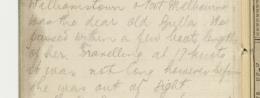 Williamstown & Port Melbourne
was the dear old Scylla. We
passed within a few boat lengths
of her. Travelling at 17 knots
it was not long however before
she was out of sight.